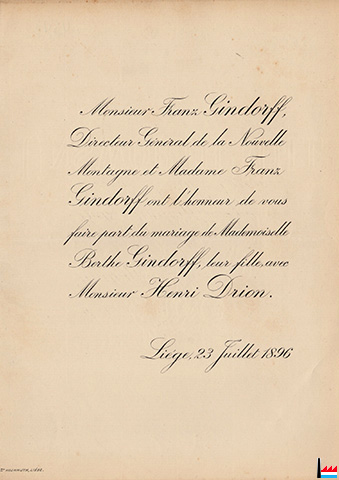 Monsieur Franz Gindorff,
Directeur Général de la Nouvelle
Montagne et Madame Franz
Gindorff ont l'honneur de vous
faire part du mariage de Mademoiselle
Berthe Gindorff, leur fille, avec
Monsieur Henri Drion.
Liége, 23 Juillet 1896
LIÉGE.